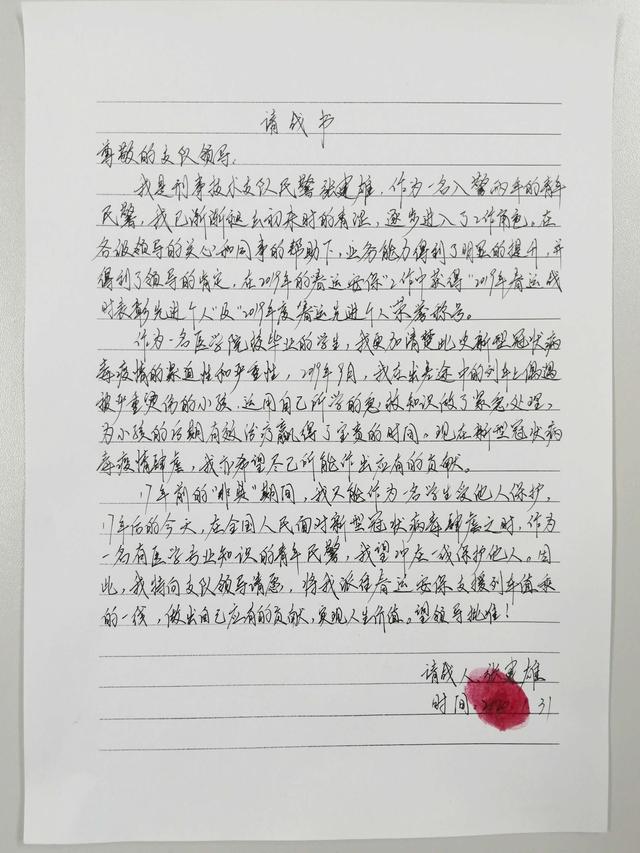 请战书
尊敬的支队领导：
我是刑事技术支队民警张建雄，作为一名入警两年的青年
民警，我已渐渐褪去初来时的青涩，逐步进入了工作角色。在
各级领导的关心和同事的帮助下，业务能力得到了明显的提升，并
得到了领导的肯定，在2019年的春运安保工作中获得“2019年春运战
时表彰先进个人”及“2019年度春运先进个人”荣誉称号。
作为一名医学院校毕业的学生，我更加清楚此次新型冠状病
毒疫情的紧迫性和严重性，2019年9月，我在出差途中的列车上偶遇
被严重烫伤的小孩，运用自己所学的急救知识做了紧急处理，
为小孩的后期有效治疗赢得了宝贵的时间。现在新型冠状病
毒疫情肆虐，我亦希望尽己所能作出应有的贡献。
17年前的“非典”期间，我只能作为一名学生受他人保护，
17年后的今天，在全国人民面对新型冠状病毒肆虐之时，作为
一名有医学专业知识的青年民警，我望冲在一线保护他人。因
此，我特向支队领导请愿，将我派往春运安保支援列车值乘
的一线，做出自己应有的贡献，实现人生价值。望领导批准！
请战人：张建雄
时间：2020.1.31